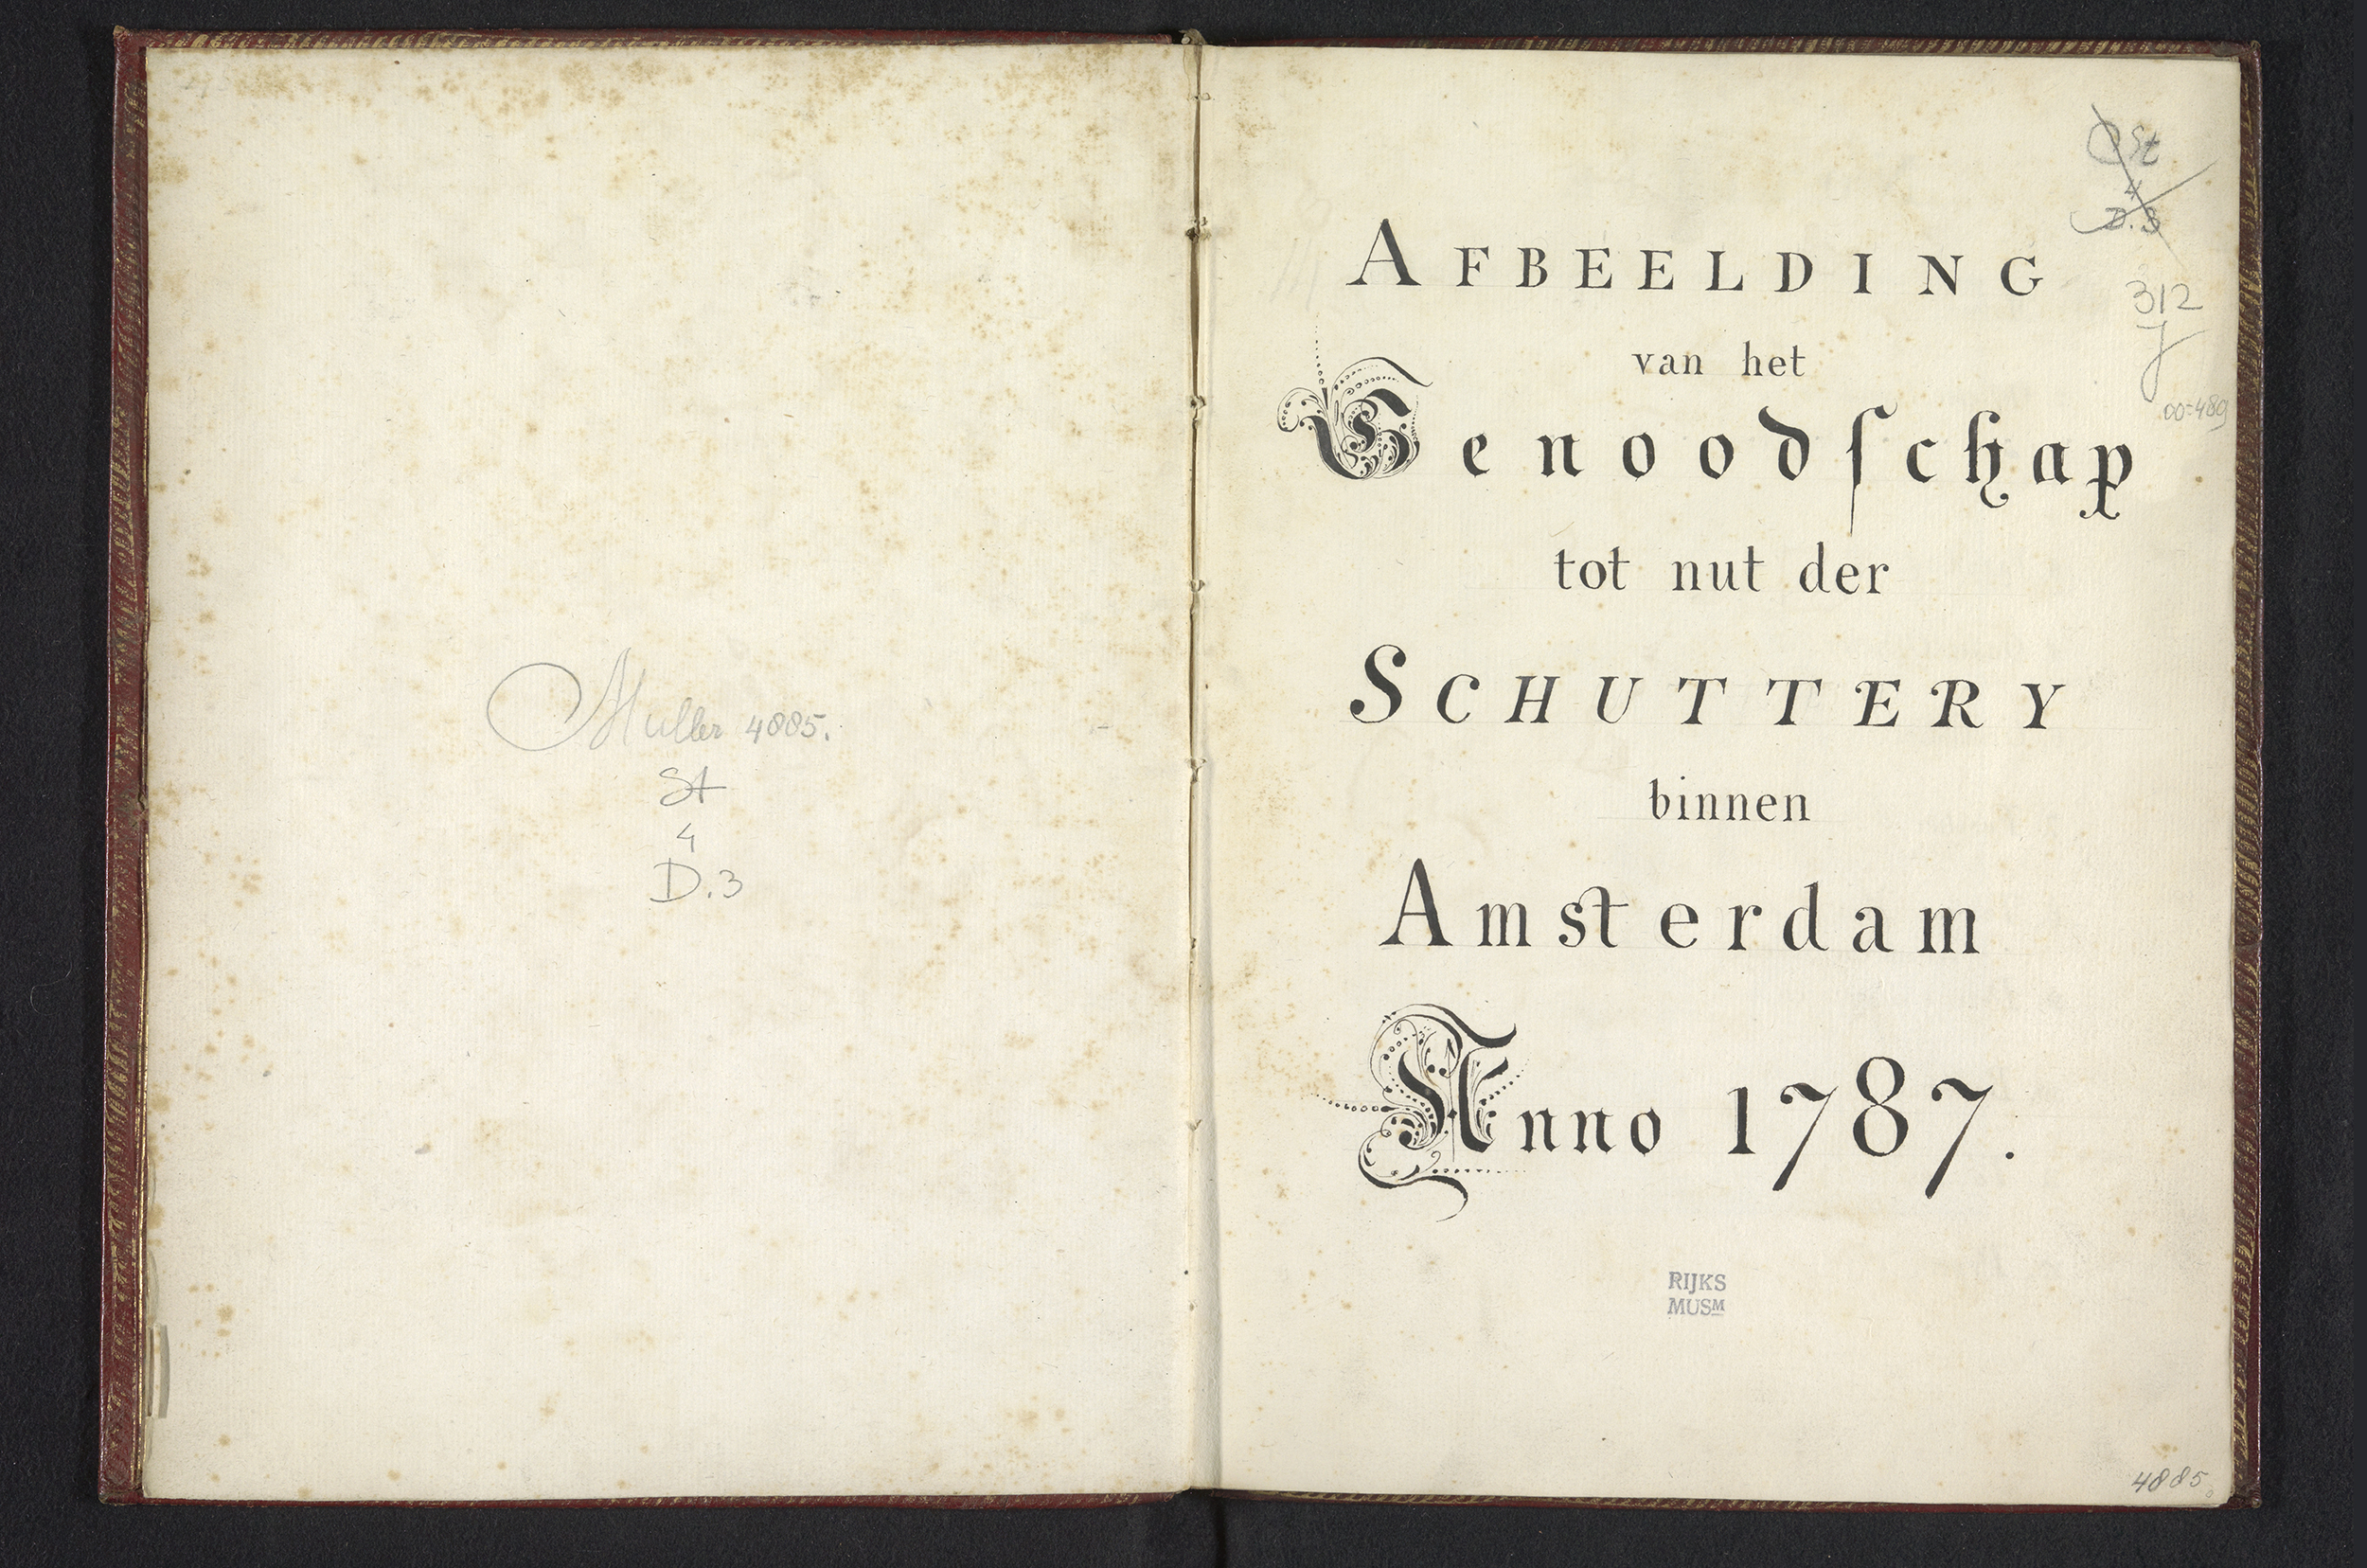 Muller 4885.
St
4
D.3
St
4
D.3
312
J
00:489
AFBEELDING
van het
Genoodſchap
tot nut der
SCHUTTERY
binnen
Amsterdam
Anno 1787.
RIJKS
MUSM
4885